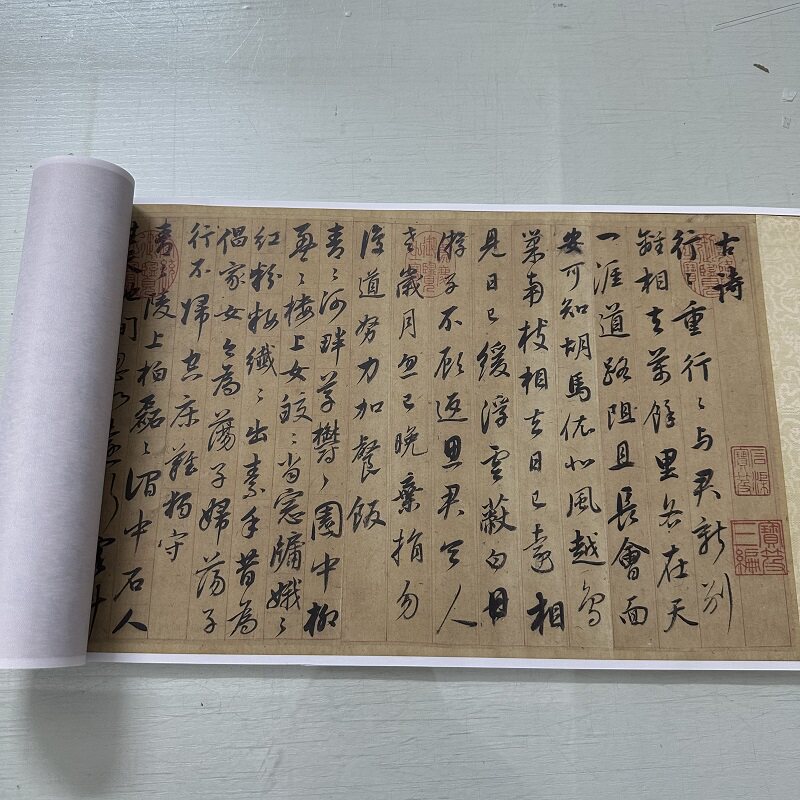 古詩
行〻重行〻与君新别
離相去萬餘里各在天
一涯道路阻且長會面
安可知胡馬依北風越鳥
巢南枝相去日已遠相
見日已緩浮雲蔽白日
游子不顧返思君令人
老歲月忽已晚棄捐勿
復道努力加餐飯
青〻河畔草欝〻園中柳
盈〻樓上女皎〻當窓牖娥〻
紅粉粧纖〻出素手昔為
倡家女今為蕩子婦蕩子
行不歸空床難獨守
青〻陵上柏磊〻澗中石人
間忽如遠行客斗
石渠寶笈
寶笈三編